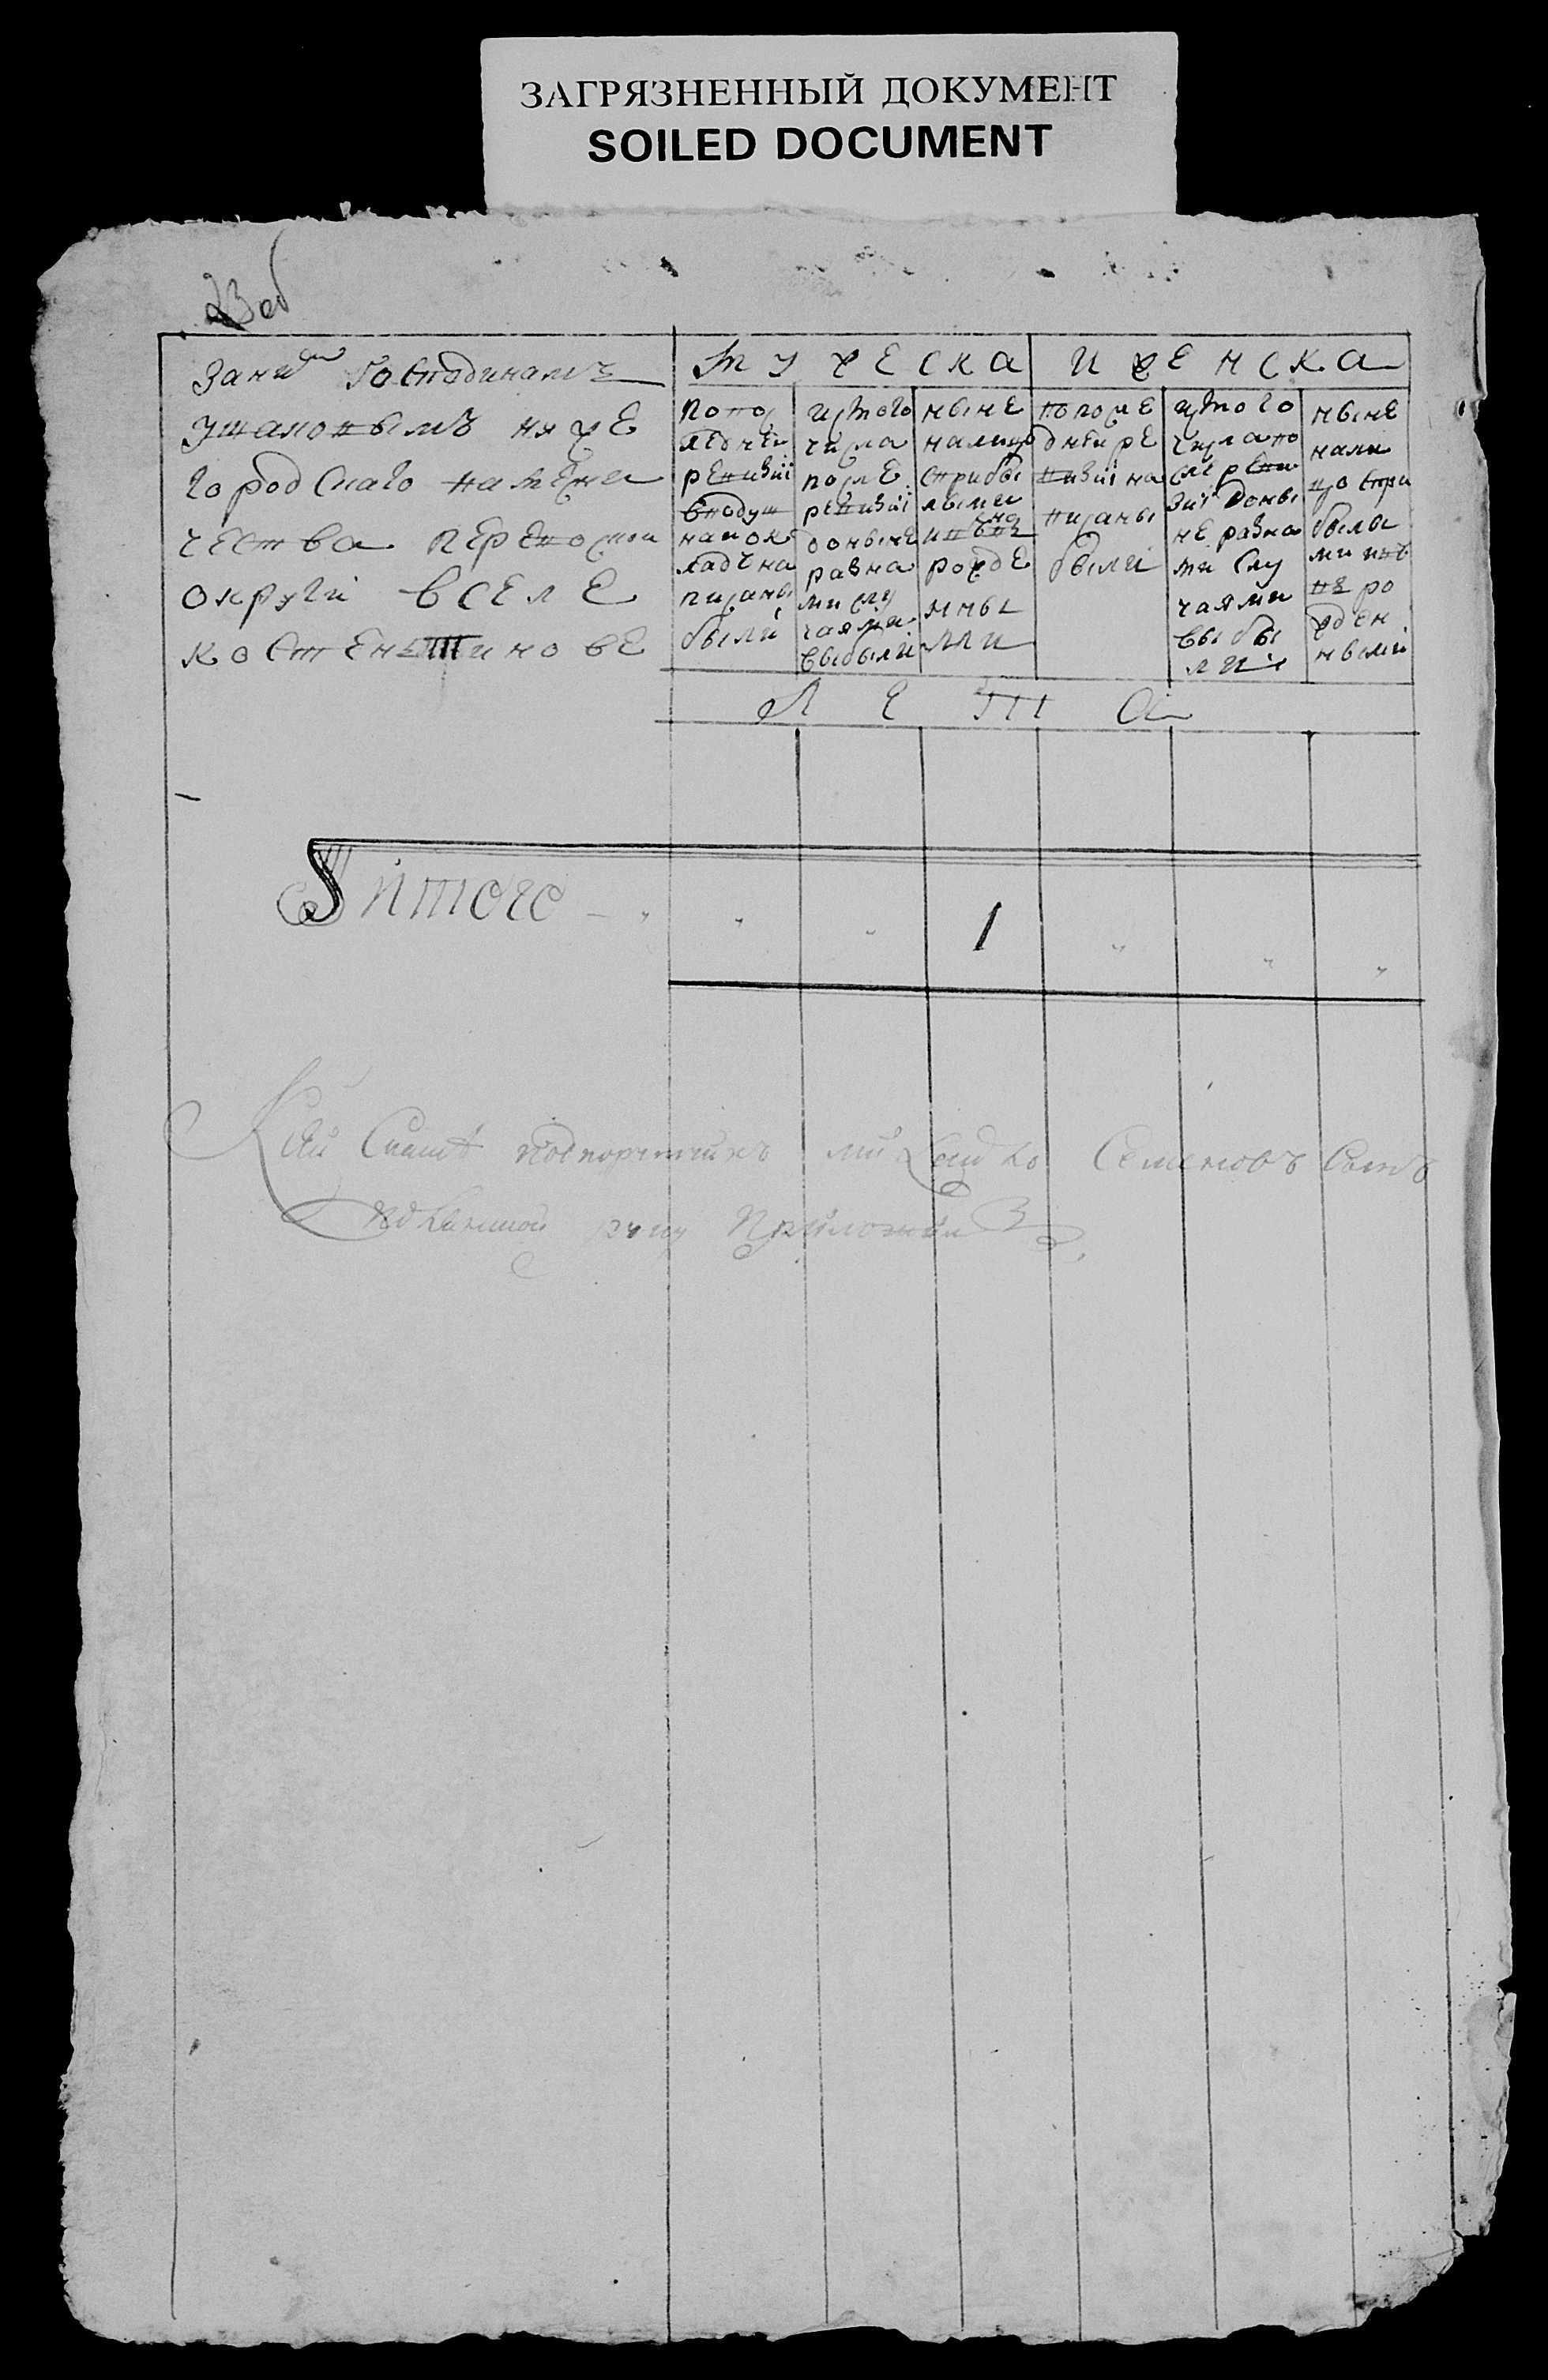 ЗАГРЯЗНЕННЫЙ ДОКУМЕНТ
SOILED DOCUMENT
23 об
за ним Господинамъ
ушаковымъ ниже
городскаго намесни
чества перевоской
округи вселе
костентинове
мужеска
попос
ледней
ревизiи
вподуш
ной ок
ладъ на
писаны
были
истого
числа
после
ревизiи
доныне
разна
ми слу
чаями
выбыли
ныне
налицо
сприбы
лыми
ивновь
рожде
нны
ми
и женска
попосле
дней ре
визiи на
писаны
были
истого
числа по
сле реви
зiи доны
не разна
ми слу
чаями
выбы
ли
ныне
нали
цо спри
былы
ми ивъ
нв ро
жден
ными
лета
итого 1
Семеновъ сынъ
руку приложилъ